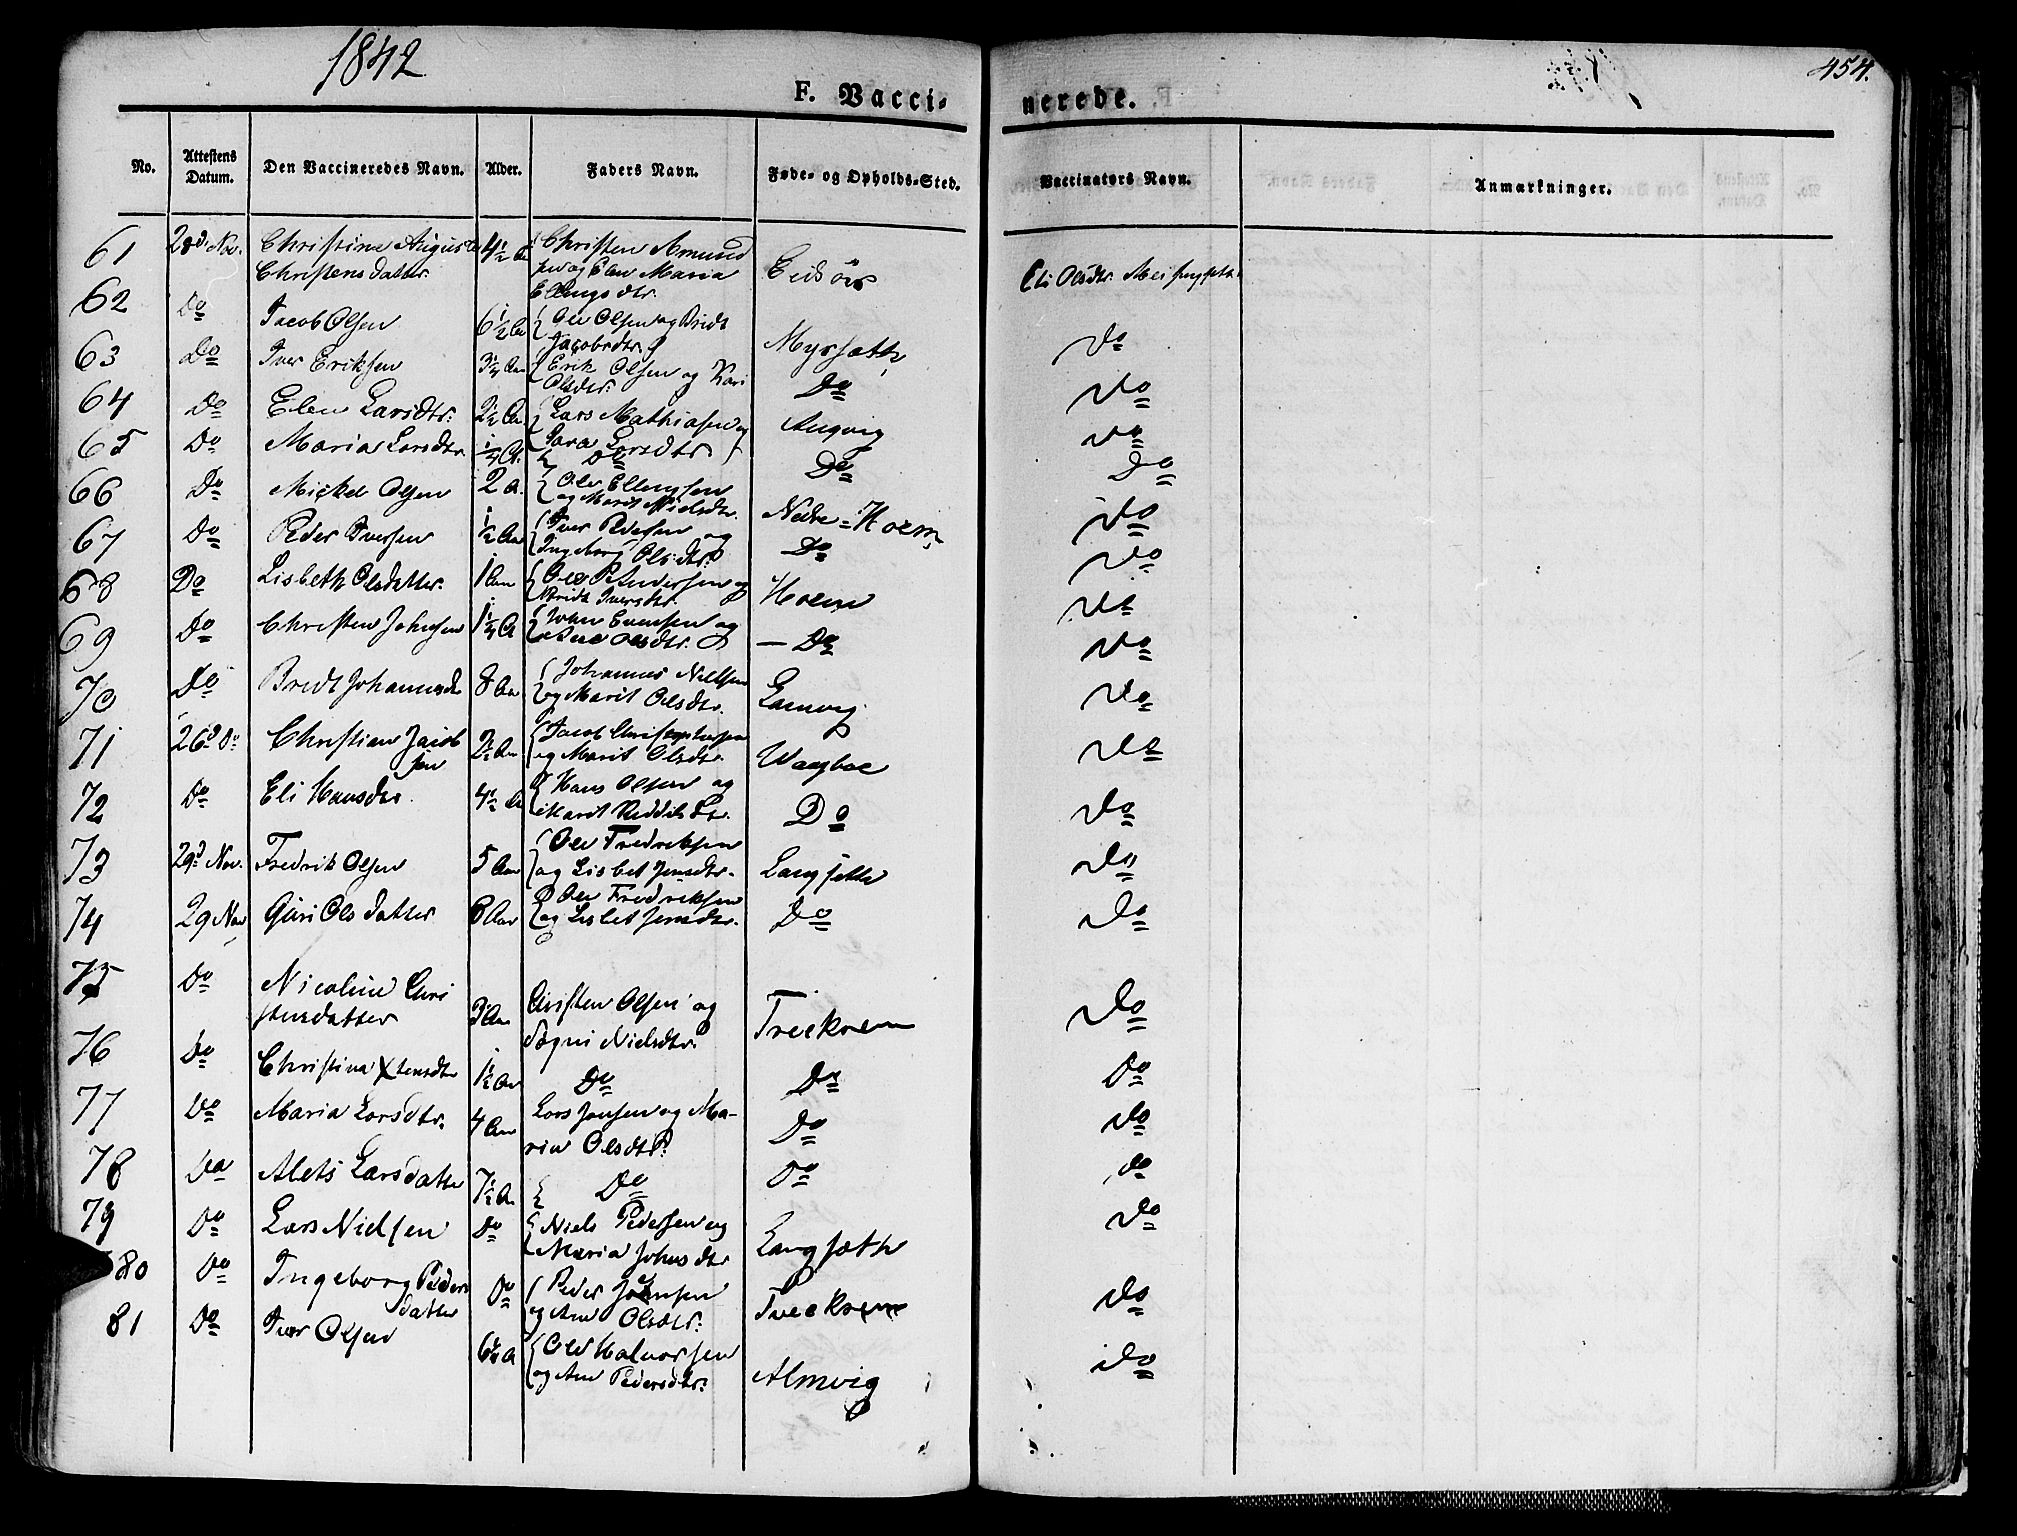 1842
454.
F. Vacci-
nerede.
No. Attestens Datum. Den Vaccineredes Navn. Alder. Faders Navn. Føde- og Opholds-Sted. Vaccinators Navn. Anmærkninger.
61 28d Nov. Christine Auguste 4½ Aa Christen Amund
Christensdatter sen og Elen Maria Eidsör Eli Olsdtr.
Ellingsdtr.
62 Do Jacob Olsen 6½ Aa Ole Olsen og Bridt Myrsæth Do
Jacobsdtr.
63 Do Iver Eriksen 3¼ Aar Erik Olsen og Kari Do Do
Olsdtr.
64 Do Elen Larsdtr. 2½ Aa Lars Mathiasen og Angvig Do
Sara Larsdtr
65 Do Maria Larsdtr ¼ A. Do Do Do
66 Do Mickel Olsen 2 A. Ole Ellingsen Nedre=Hoem Do
og Marit Nielsdtr.
67 Do Peder Iversen ½ Aa Iver Pedersen og Do Do
Ingeborg Olsdtr.
68 Do Lisbeth Olsdatter. 1 Aar Ole Pedersen og Hoem Do
Bridt Iversdtr.
69 Do Christen Johnsen 1¼ A John Evensen og — Do Do
Olsdtr.
70 Do Bridt Johannesdr 8 Aar Johannes Nielsen Do
og Marit Olsdtr.
71 26d Do Christian Jacob 2½ Aar Jacob Christophersen Waagboe Do
sen og Marit Olsdtr.
72 Do Eli Hansdtr. 4½ A Hans Olsen og Do Do
Marit
73 29d Nov. Fredrik Olsen 5 Aar Ole Fredriksen Langsetth Do
og Lisbet Jensdtr.
74 29 Nov Guri Olsdatter 8 Aar Ole Fredriksen Do Do
og Lisbet Jensdtr.
75 Do Nicoline Chri Christen Olsen og
stensdatter 3 Aar Nielsdtr. Treekrem Do
76 Do Christina Xtensdtr 1½ Aar Do Do Do
77 Do Maria Larsdtr. 4 Aar Lars Jensen og Ma- Do Do
ria Olsdtr.
78 Do Alets Larsdatter 7½ A Do Do Do
79 Do Lars Nielsen Do Niels Pedersen og Langsæth Do
Maria Johnsdtr
80 Do Ingeborg Peders Do Peder Johnsen Treekrem Do
datter og Ane Olsdtr.
81 Do Iver Olsen 6¼ A Ole Halvorsen Almvig Do
og Ane Pedersdtr.